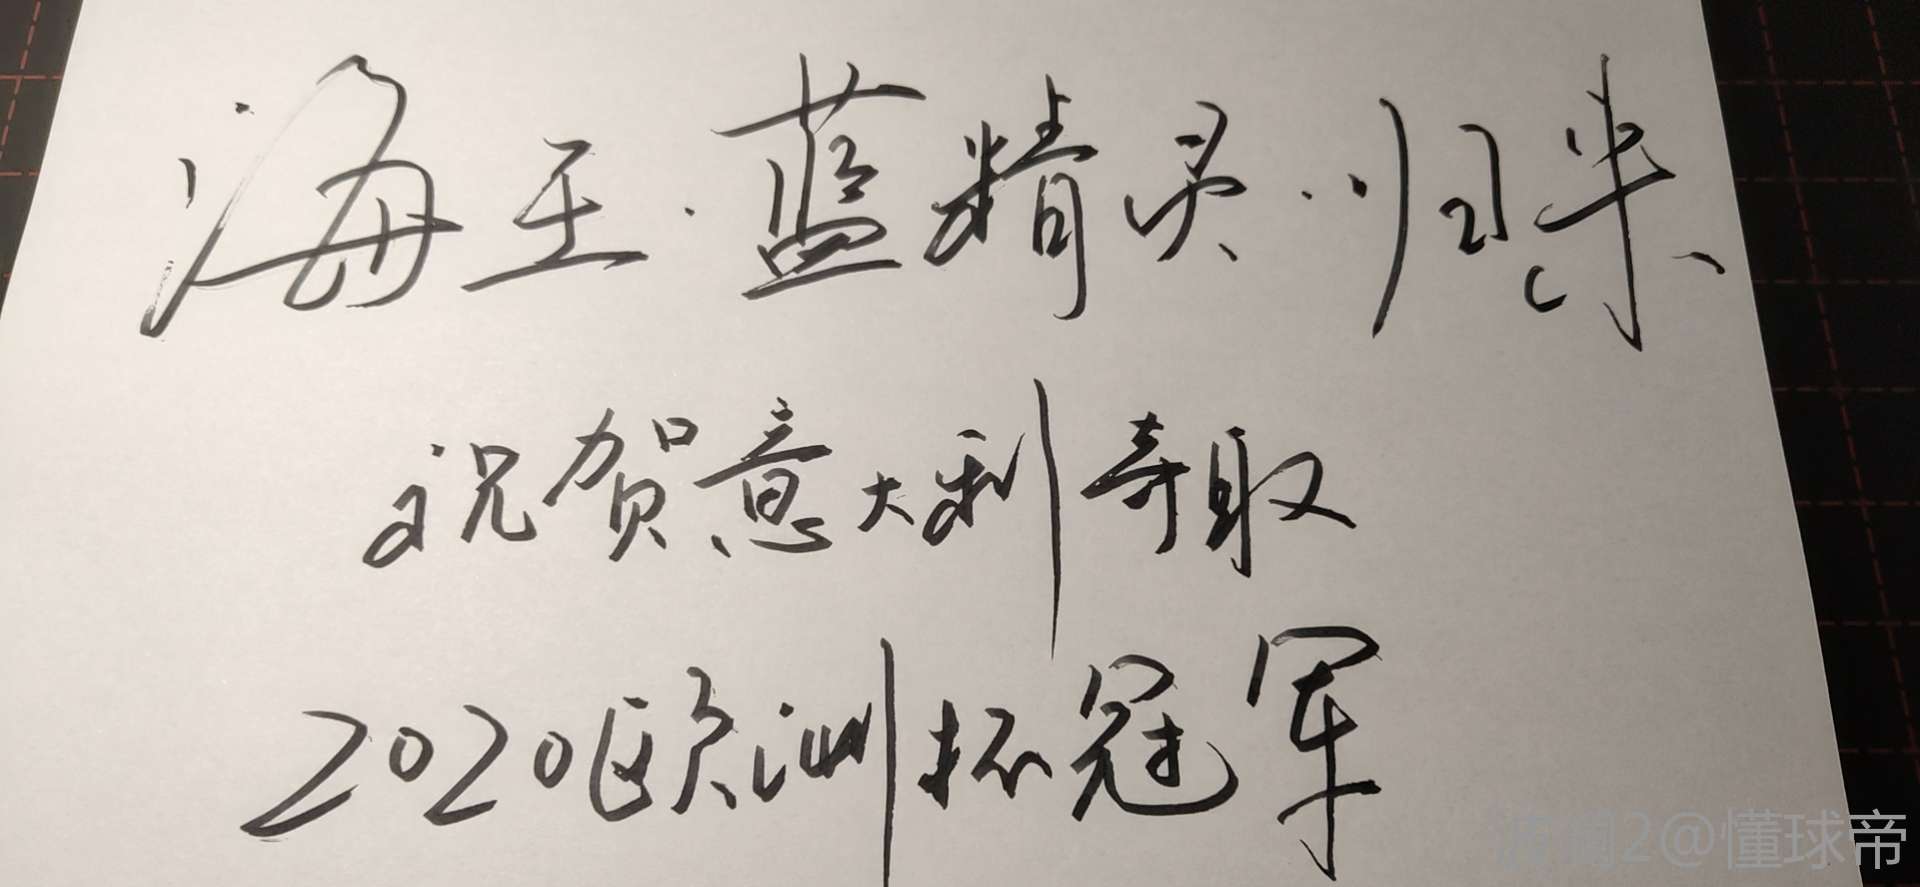 海王·蓝精灵·归来
祝贺意大利夺取
2020欧洲杯冠军
2@懂球帝